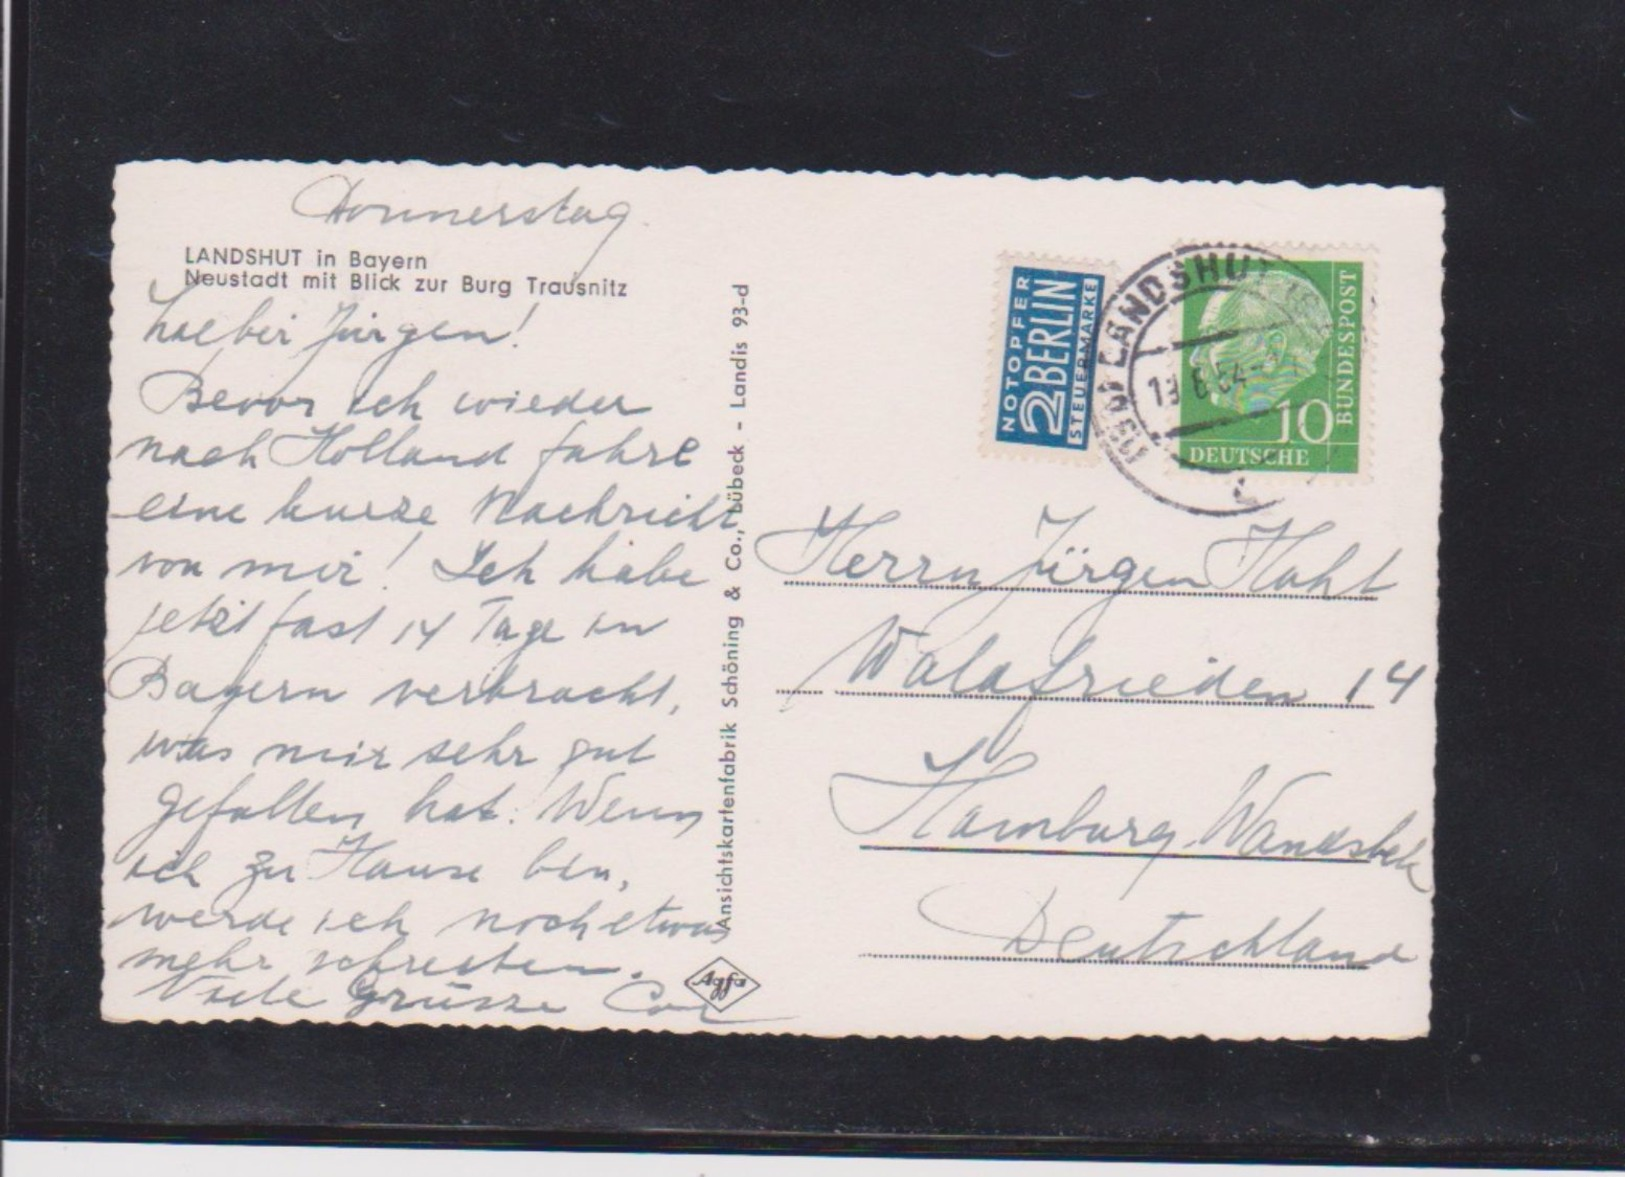 Donnerstag.
LANDSHUT in Bayern
Neustadt mit Blick zur Burg Trausnitz
Lieber Jürgen!
Bevor ich wieder
nach Holland fahre
eine kurze Nachricht
von mir! Ich habe
jetzt fast 14 Tage in
Bayern verbracht,
was mir sehr gut
gefallen hat. Wenn
ich zu Hause bin,
werde ich noch etwas
mehr schreiben.
Viele Grüsse Cor
Ansichtskartenfabrik Schöning & Co., Lübeck - Landis 93-d
Agfa
NOTOPFER
2 BERLIN
STEUERMARKE
LANDSHUT
BUNDESPOST
10
DEUTSCHE
Herrn Jürgen
Waldfrieden 14
Hamburg. Wandsbek
Deutschland